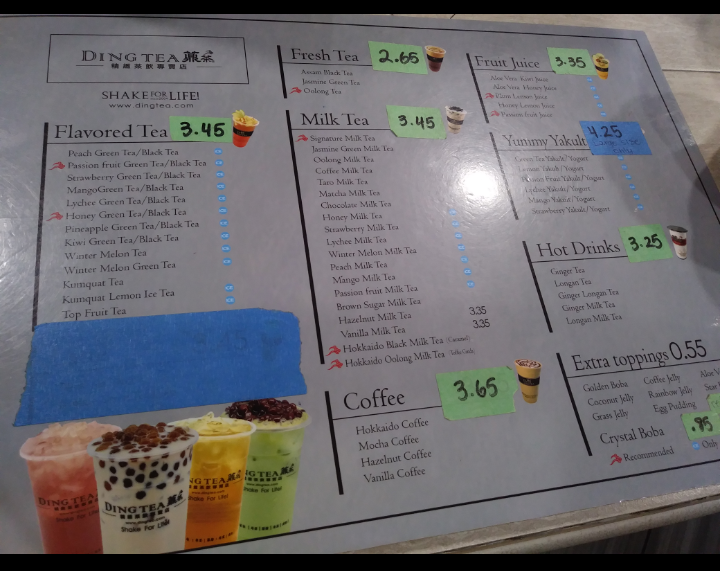 DINGTEA 薡茶
精緻茶飲專賣店
SHAKE FOR LIFE!
www.dingtea.com
Flavored Tea 3.45
Peach Green Tea/Black Tea
Passion fruit Green Tea/Black Tea
Strawberry Green Tea/Black Tea
MangoGreen Tea/Black Tea
Lychee Green Tea/Black Tea
Honey Green Tea/Black Tea
Pineapple Green Tea/Black Tea
Kiwi Green Tea/Black Tea
Winter Melon Tea
Winter Melon Green Tea
Kumquat Tea
Kumquat Lemon Ice Tea
Top Fruit Tea
Fresh Tea 2.65
Assam Black Tea
Jasmine Green Tea
Oolong Tea
Milk Tea 3.45
Signature Milk Tea
Jasmine Green Milk Tea
Oolong Milk Tea
Coffee Milk Tea
Taro Milk Tea
Matcha Milk Tea
Chocolate Milk Tea
Honey Milk Tea
Strawberry Milk Tea
Lychee Milk Tea
Winter Melon Milk Tea
Peach Milk Tea
Mango Milk Tea
Passion fruit Milk Tea
Brown Sugar Milk Tea
Hazelnut Milk Tea 3.35
Vanilla Milk Tea 3.35
Hokkaido Black Milk Tea (Caramel)
Hokkaido Oolong Milk Tea
Coffee 3.65
Hokkaido Coffee
Mocha Coffee
Hazelnut Coffee
Vanilla Coffee
Fruit Juice 3.35
Aloe Vera Kiwi Juice
Aloe Vera Honey Juice
Lemon Juice
Honey Lemon Juice
Passion fruit Juice
Yummy Yakult 4.25
Green Tea Yakult/Yogurt
Lemon Yakult/Yogurt
Passion Fruit Yakult/Yogurt
Lychee Yakult/Yogurt
Mango Yakult/Yogurt
Strawberry Yakult/Yogurt
Hot Drinks 3.25
Ginger Tea
Longan Tea
Ginger Longan Tea
Ginger Milk Tea
Longan Milk Tea
Extra toppings 0.55
Golden Boba Coffee Jelly Aloe V
Coconut Jelly Rainbow Jelly
Grass Jelly Egg Pudding
Crystal Boba .95
Recommended Only
DINGTEA
Shake For Life!
DINGTEA
www.dingtea.com
Shake For Life!
DINGTEA
Shake For Life!
DINGTEA
Shake For Life!